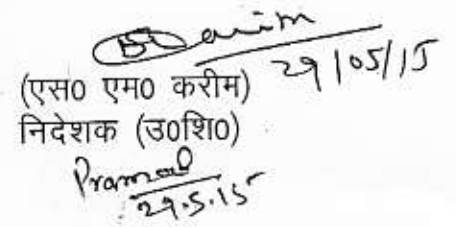 29/05/15
(एस0 एम0 करीम)
निदेशक (उ0शि0)
Pramod
29.5.15